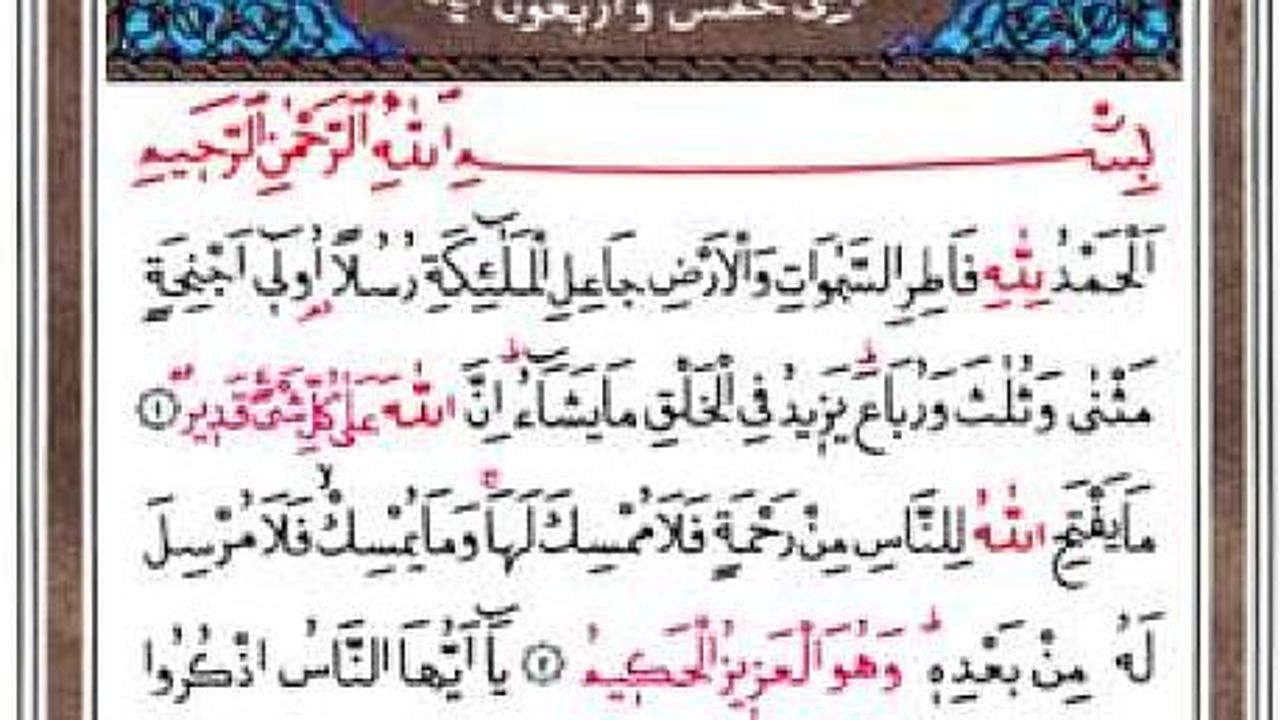 خمس واربعون
بِسْمِ اللّٰهِ الرَّحْمٰنِ الرَّحِيمِ
اَلْحَمْدُ لِلّٰهِ فَاطِرِ السَّمٰوَاتِ وَالْاَرْضِ جَاعِلِ الْمَلٰٓئِكَةِ رُسُلًا اُو۬لٓي اَجْنِحَةٍ
مَثْنٰى وَثُلٰثَ وَرُبَاعَۜ يَزِيدُ فِي الْخَلْقِ مَا يَشَٓاءُۜ اِنَّ اللّٰهَ عَلٰى كُلِّ شَيْءٍ قَدِيرٌ ﴿١﴾
مَا يَفْتَحِ اللّٰهُ لِلنَّاسِ مِنْ رَحْمَةٍ فَلَا مُمْسِكَ لَهَاۚ وَمَا يُمْسِكْۙ فَلَا مُرْسِلَ
لَهُ مِنْ بَعْدِهِۜ وَهُوَ الْعَزِيزُ الْحَكِيمُ ﴿٢﴾ يَٓا اَيُّهَا النَّاسُ اذْكُرُوا